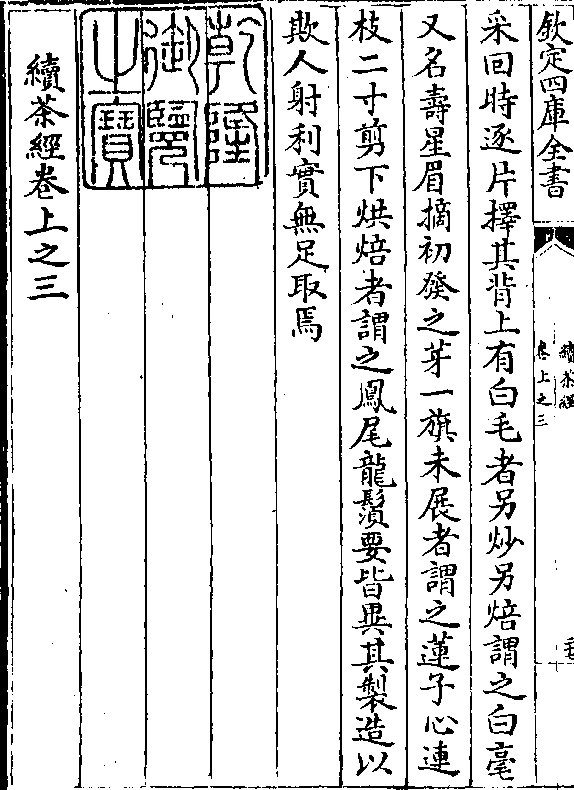 欽定四庫全書
續茶經
卷上之三
采回時逐片擇其背上有白毛者另炒另焙謂之白毫
又名壽星眉摘初發之芽一旗未展者謂之蓮子心連
枝二寸剪下烘焙者謂之鳳尾龍鬚要皆異其製造以
欺人射利實無足取焉
乾隆
御覽
之寶
續茶經卷上之三